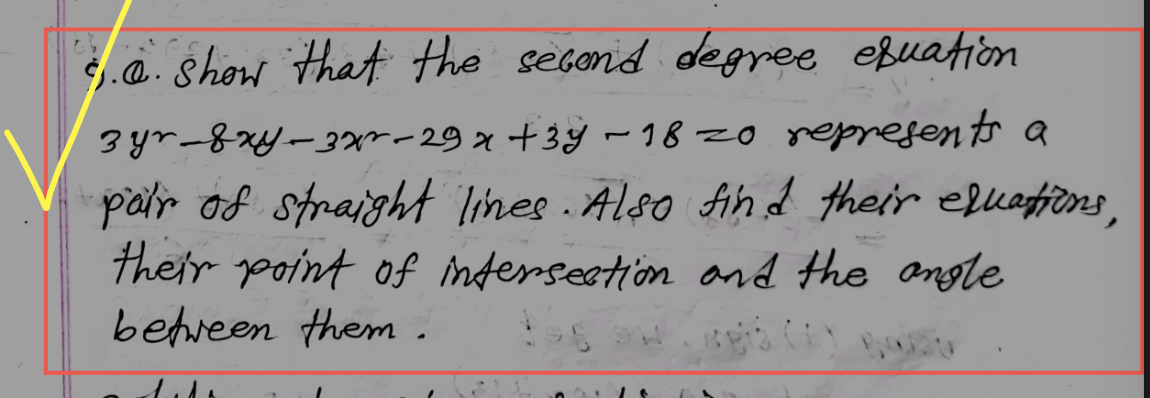 9.a. Show that the second degree equation
3y² - 8xy - 3x² - 29x + 3y - 18 = 0 represents a
pair of straight lines. Also find their equations,
their point of intersection and the angle
between them.